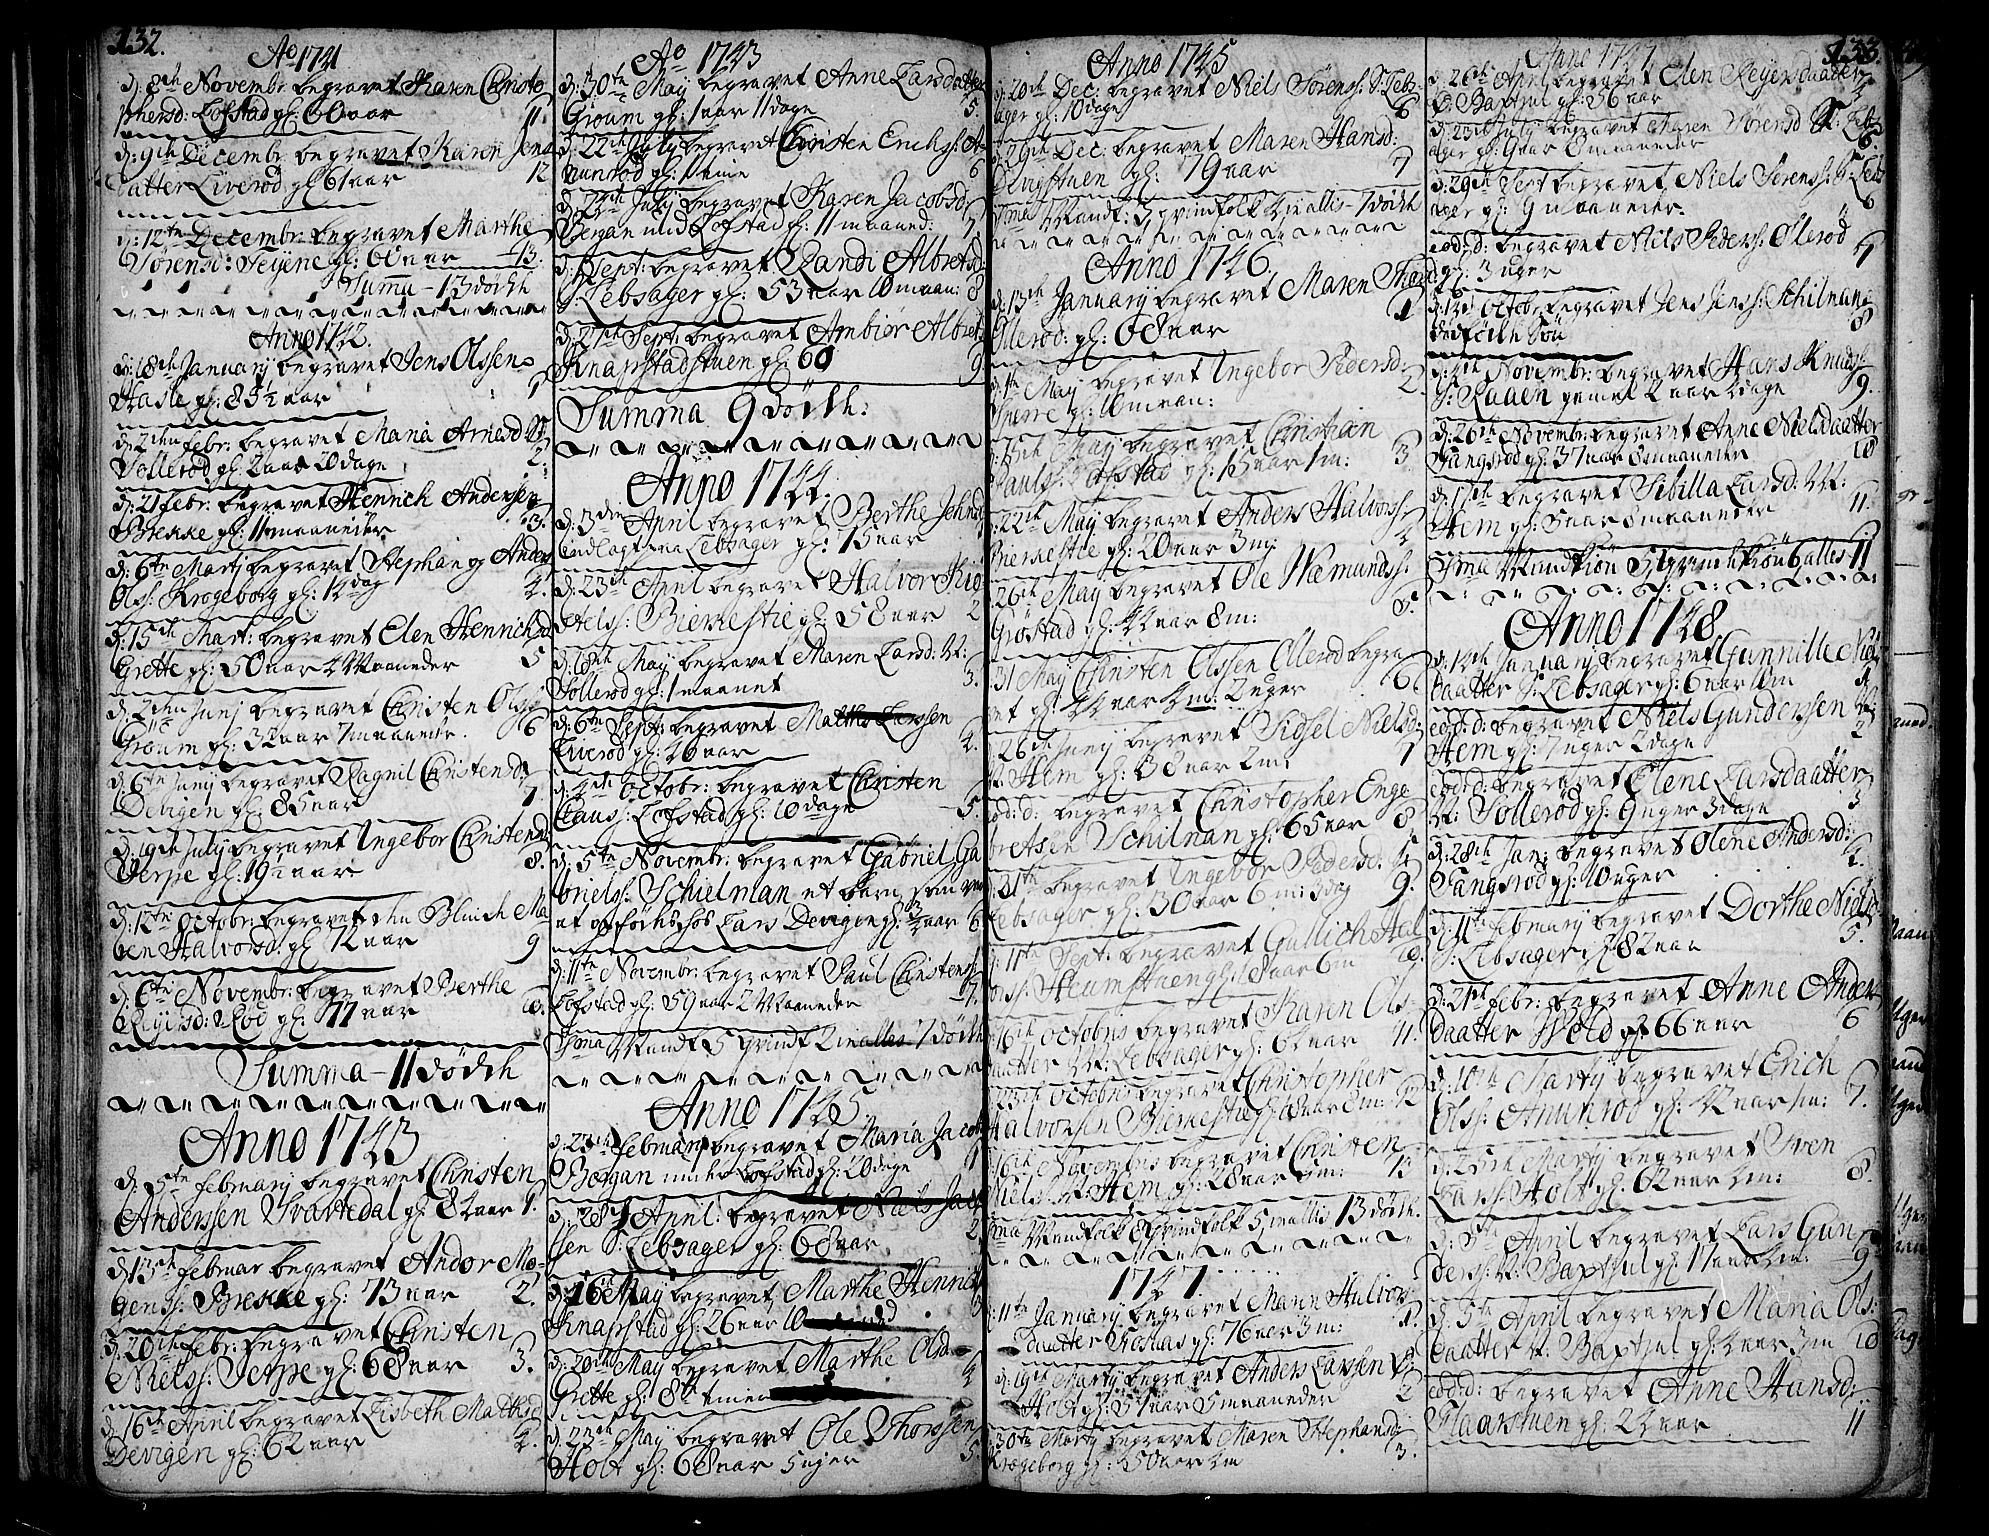 132.
Ao 1741
d: 8de Novembr: begravet Karen Christo
phersd: Lofstad gl: 60 aar 11.
d: 9de Decembr: begravet Karen Jens
datter Liverød gl: 61 aar 12
d: 12te Decembr: begravet Marthe
Sørensd: gl: 60 aar 13.
Summa - 13 dödde
Anno 1742.
d: 18de January begravet Jens Olssen
Hasle gl: 85½ aar 1
d: 2den Febr: begravet Maria Arnesd
Sollerød gl: 2 aar 20 dage 2.
d: 21 Febr: begravet Henrich Andersen
Brekke gl: 11 maaneder 3.
d: 6te Martj begravet Stephan og Anders
Ols: Krogeborg gl: 12 dag 4.
d: 15de Mart: begravet Elen Henrichsd
Grette gl: 50 aar 4 Maaneder 5
d: 2den Junj begravet Christen Ols:
Groum gl: 32 aar 7 maaneder. 6
d: 6te Junij begravet Ragnil Christensd:
Devigen gl: 85 aar 7
d: 19de July begravet Ingebor Christensd
Jerpe gl: 19½ aar 8.
d: 12te Octobr: begravet Ma
ren Halvorsd: gl: 72 aar 9
d: 6te Novembr: begravet Berthe
Reijersd: Rød gl: 77 aar 10.
Summa - 11 dödde
Anno 1743
d: 5te February begravet Christen
Anderssen Svartedal gl: 84 aar 1.
d: 13de Februar begravet Andor Mo-
genss: Brekke gl: 73 aar 2.
d: 20de Febr: begravet Christen
Nielss: Jerpe gl: 68 aar 3.
d: 16de April begravet Lisbeth Mathisd
Devigen gl: 62 aar 4.
Ao 1743
d: 30te May begravet Anne Larsdatter
Groum gl: 1 aar 11 dage 5.
d: 22de July begravet Christen Erichs: A-
nunrød gl: 1 time 6
July begravet Karen Jacobsd
Bergan under Lofstad gl: 11 maaned: 7.
d: Sept: begravet Randi Albretsd:
S: Lebsager gl: 53 aar 10 maan: 8
d: 27de Sept: begravet Ambiør Albrets
Knapstadstuen gl: 60 9.
Summa 9 dödde:
Anno 1744.
d: 3den April begravet Berthe Johnsd
indlagt paa Lebsager gl: 75 aar 1
d: 23de April begravet Halvor Kio-
stelss: Bierkestie gl: 58 aar 2
d: 18de May begravet Maren Larsd: N:
Sollerød gl: 1 maanet 3.
d: 6te Sept: begravet Mathis Larssen
Liverød gl: 46 aar 4.
d: 4de Octobr: begravet Christen
Clauss: Lofstad gl: 10 dage 5.
d: 5te Novembr: begravet Gabriel Ga-
brielss: Schielman et barn som var
at opföde hos Lars Devigen gl: ¾ aar 6
d: 11te Novembr: begravet Paul Christenss:
Lofstad gl: 59 aar 2 Maaneder 7.
Sma Mandk 5 qvindk 2 in alles 7 dödde
Anno 1745
d: 23de February begravet Maria Jacobs
Bergan under Lofstad gl: 20 dage 1
d: 28de April: begravet Niels Jac
ssen S: Lebsager gl: 68 aar 2
d: 16 May begravet Marthe Henrichs
Knapstad gl: 26 aar 10 3
d: 20de May begravet Marthe Olsd
Grette gl: 84 timer 4
d: 23de May begravet Ole Thorssen
Holt gl: 68 aar 5 uger 5
Anno 1745
d: 20de Dec: begravet Niels Sørenss: S: Lebs-
ager gl: 10 dage 6
d: 29de Dec: begravet Maren Hansd:
Devigstuen gl: 79 aar 7
Sma Mandk: 3 qvindfolk 4 in alles - 7 dödde
Anno 1746.
d: 13de January begravet Maren Thord
Ollerød: gl: 68 aar 1
d: 1te May begravet Ingebor Pedersd:
Sperre gl: 10 maan: 2.
d: 15de May begravet Christian
Paulss: Lofstad gl: 15 aar 1 m: 3.
d: 22de May begravet Anders Halvorss:
Bierkestie gl: 20 aar 3 m: 4
d: 26te May begravet Ole Wæmundss:
Grøstad gl: 44 aar 8 m: 5.
d: 31 May Christen Olssen Ollerød begra-
vet gl: 44 aar 4 m: 2 uger 6.
d: 26de Junij begravet Sidsel Nielsd:
N: Hem gl: 38 aar 2 m: 7
eod: d: begravet Christopher Enge
bretsen Schilnan gl: 65 aar 8.
d: 31te begravet Ingebor Pedersd:
Lebsager gl: 30 aar 6 m: 3 dag 9.
d: 11te Sept: begravet Gullich Hal
vorss: Heumstuen gl: 18 aar 6 m 10.
d: 16de Octobris begravet Karen Ols-
datter N: Lebsager gl: 62 aar 11.
d: 23de Octobris begravet Christopher
Halvorsen Bierkestie gl: 18 aar 8 m: 12
d: 16de Novembris begravet Christen
Nielss: N: Hem gl: 28 aar 13
Sma Mandfolk 8 qvindfolk 5 in alles 13 dödde.
1747.
d: 11te January begravet Maren Halvor-
daatter Fosnas gl: 76 aar 3 m: 1.
d: 19de Martj begravet Anders Larsen
Holt gl: 57 aar 5 maaneder 2
d: 30te Martj begravet Maren Stephansd:
Krogeborg gl: 50 aar 4 m 3.
133.
Anno 1747
d: 26de April begravet Elen Reijersdaatter
Ø: Baptsul gl: 56 aar 4
d: 23de July begravet Maren Sørensd S: Lebs
ager gl: 9 aar 8 maaneder 5.
d: 29de Sept begravet Niels Sørenss: S: Lebs
ager gl: 9 maaneder. 6
eod: d: begravet Niels Peders: Ollerød
gl: 3 uger 7
d: 14de Octobr begravet Jens Jens: Schilnan
dødföde Søn 8
d: 4de Novembr: begravet Hans Knuds:
S: Raaen gamel 2 aar 2 dage 9.
d: 26de Novembr: begravet Anne Nielsdaatter
Tangsrød gl: 37 aar 8 maaneder 10
d: 17de begravet Sibilla Larsd: N:
Hem gl: 5 aar 8 maaneder 11.
Sma Mandkiön 5 qvindekiön 6 alles 11
Anno 1748.
d: 14de January begravet Gunnille Niels
daatter S: Lebsager gl: 6 aar 10 m 1.
eod: d: begravet Niels Gunderssen N:
Hem gl: 7 uger 2 dage 2
eod: d: begravet Elene Larsdaatter
N: Sollerød gl: 9 uger 3 dage 3
d: 28de Jan: begravet Olene Andersd:
Tangsrød gl: 10 uger 4.
d: 11te February begravet Dorthe Nielsd:
S: Lebsager gl 82 aar 5.
d: 21de Febr: begravet Anne Anders
daatter Wold gl: 66 aar 6
d: 10de Martj begravet Erich
Olss: Anunrød gl: 42 aar 1 m: 7.
d: 25de Martj begravet Sven
Larss: Holt gl: 62 aar 4 m: 8.
d: 5te April begravet Lars Gun-
derss: N: Baptsul gl: 17 aar 4 m: 9
d: 5te April begravet Maria Ols:
daatter N: Baptsul gl: 4 aar 3 m 10
eod: d: begravet Anne Hansd:
Haarstuen gl: 24 aar 11